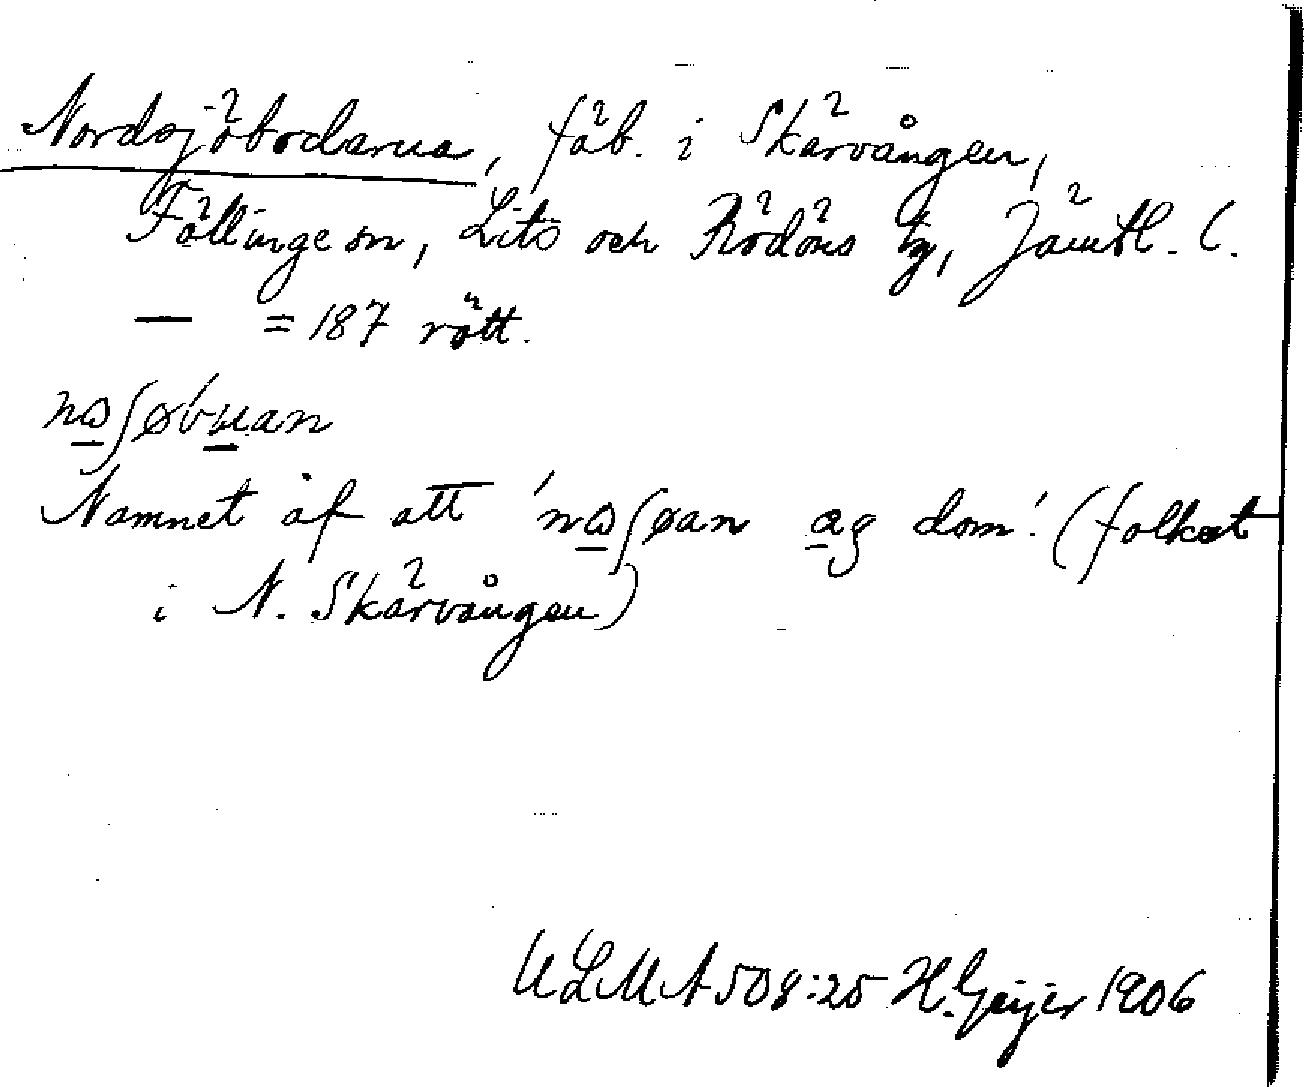 Nordsjöbodarna, fäb. i Skärvången,
Föllinge sn, Lits och Rödöns tg, Jämtl. l.
— = 187 rött.
nɷʃøbuan
Namnet af att 'nɷʃøan ag dom'. (folket
i N. Skärvången)
ULMA 508:25 H. Geijer 1906